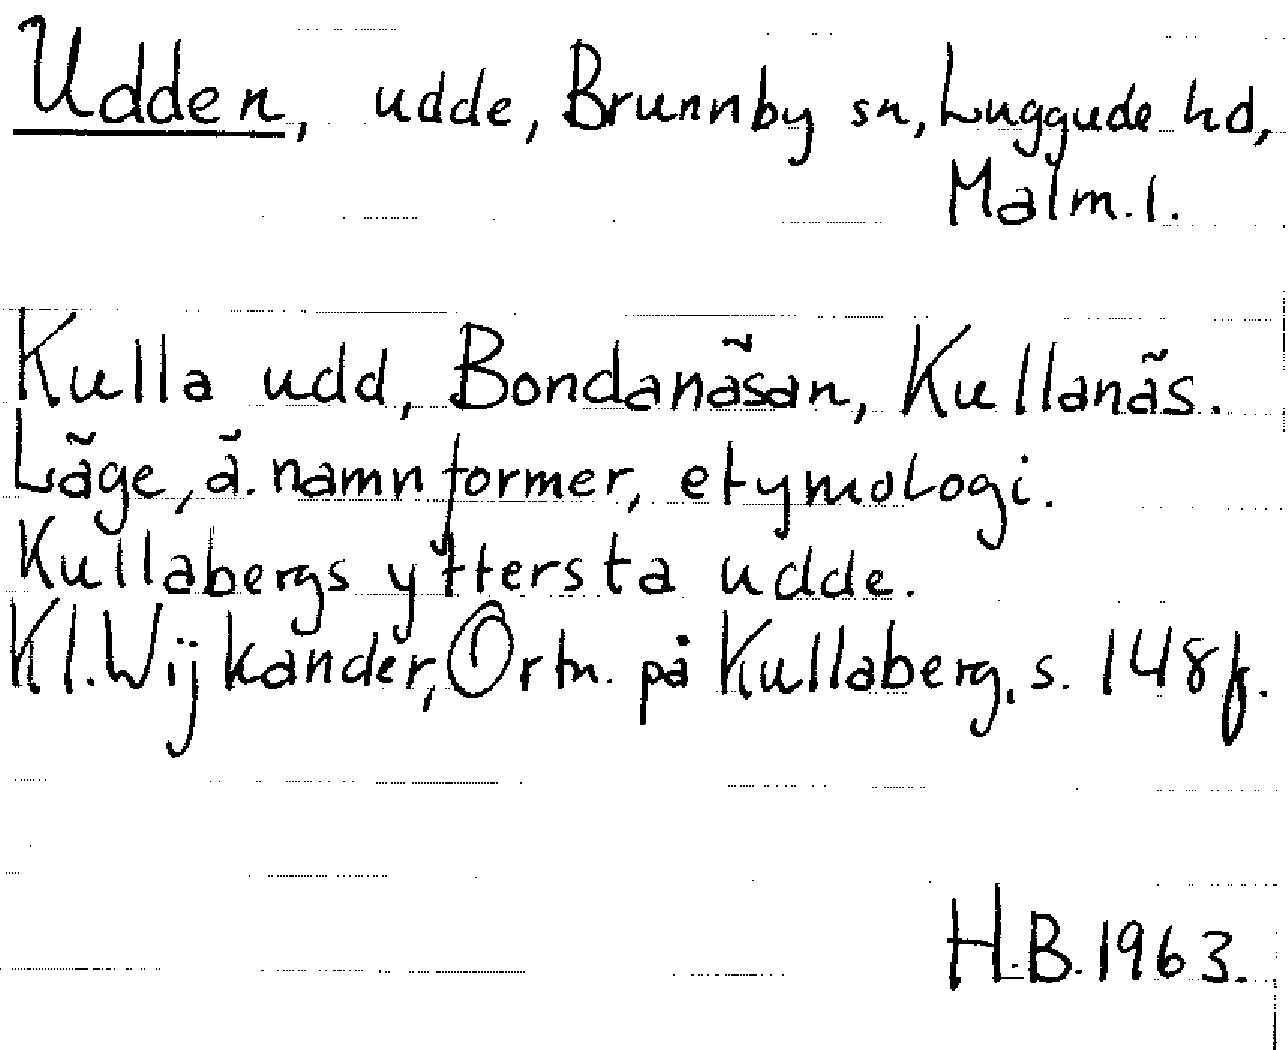 Udden, udde, Brunnby sn, Luggude hd,
Malm. l.
Kulla udd, Bondanäsan, Kullanäs.
Läge, ä. namnformer, etymologi.
Kullabergs yttersta udde.
Kl. Wijkander, Ortn. på Kullaberg, s. 148 f.
H.B. 1963.